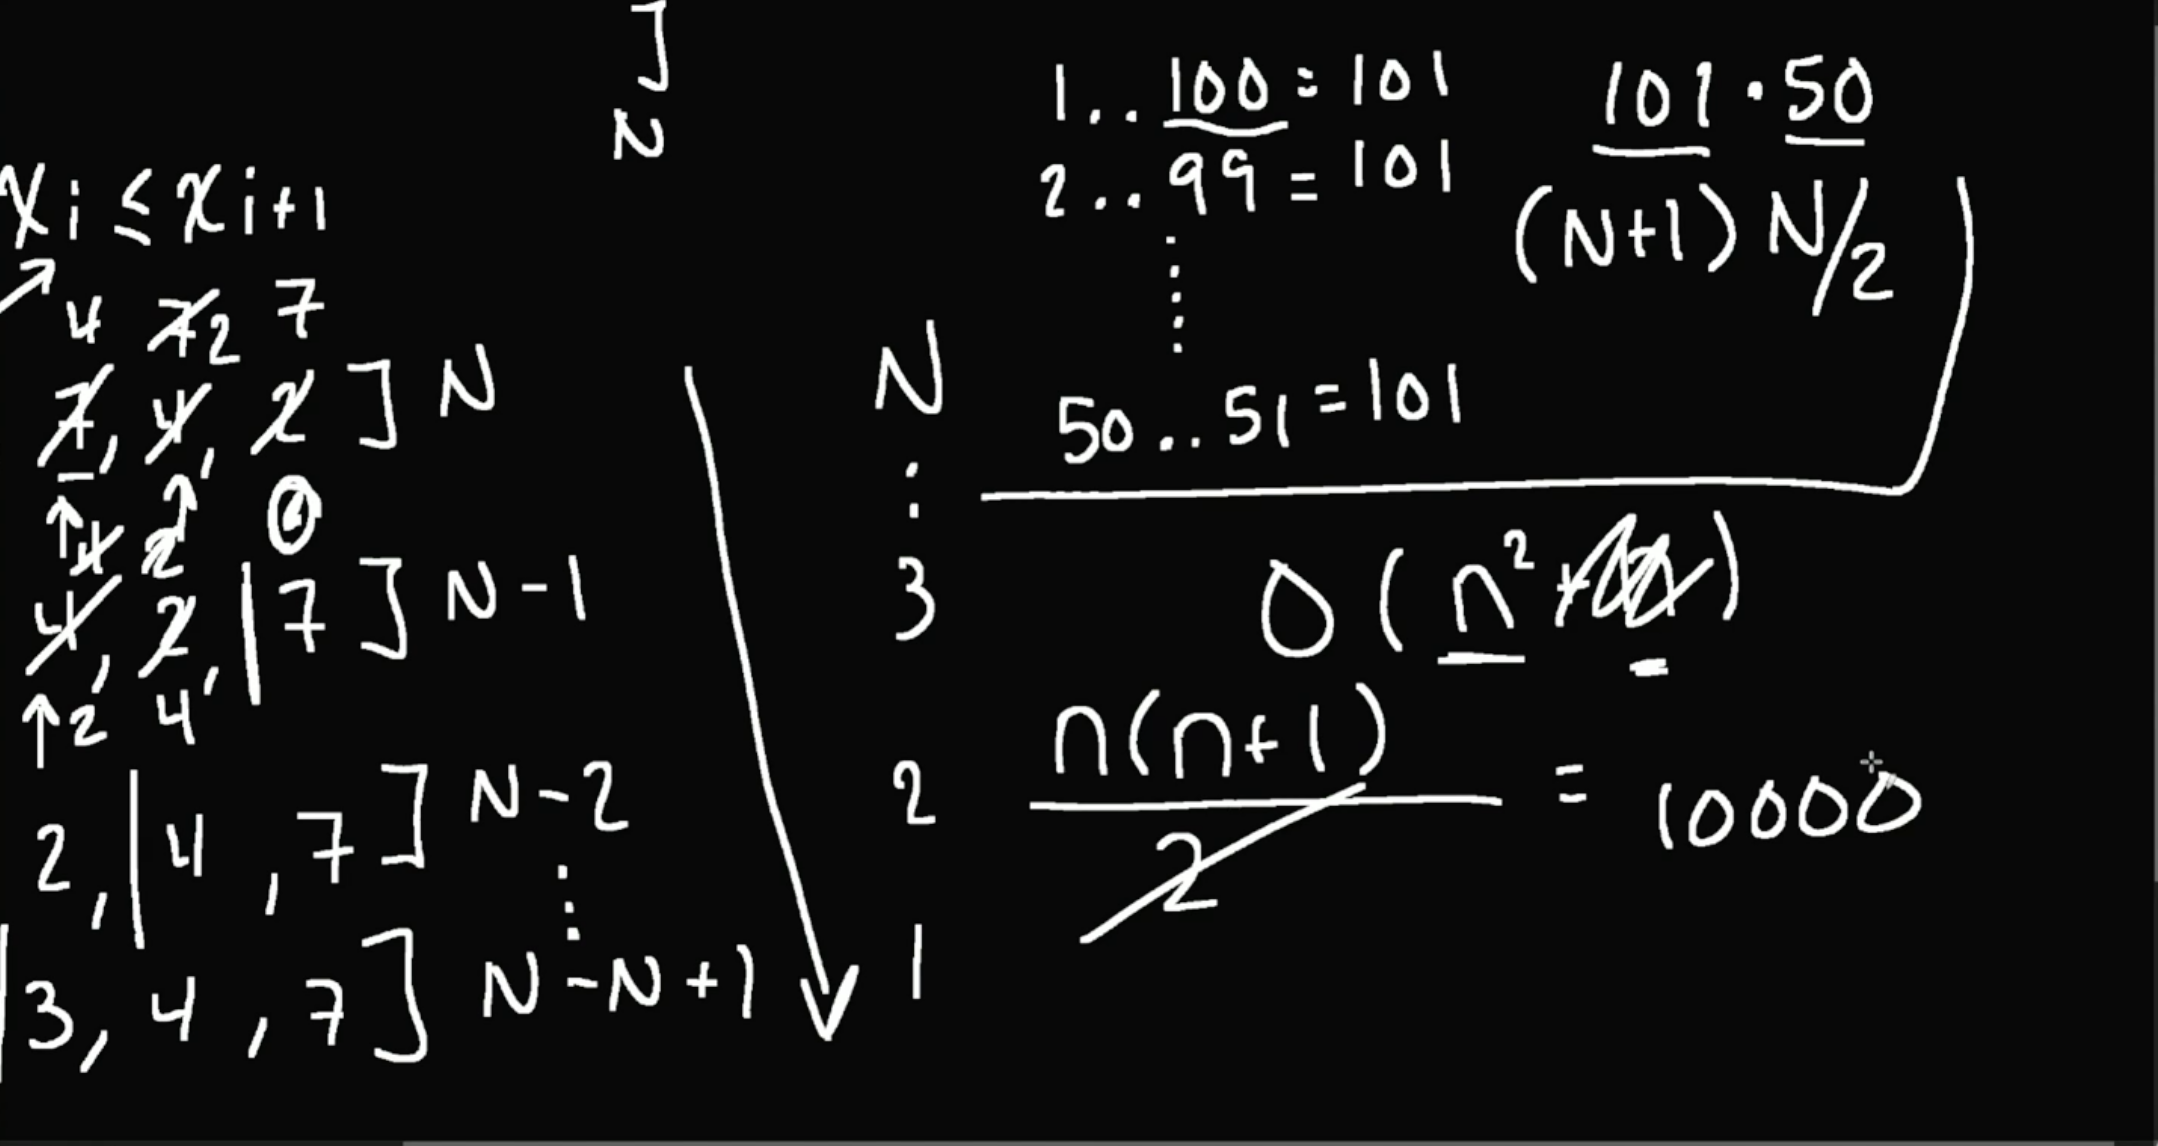 ]
N
xi ≤ xi+1
4 7 2 7
7, 4, 2 ] N
4 2
4, 2, | 7 ] N-1
2 4
2, | 4, 7 ] N-2
⋮
| 3, 4, 7 ] N-N+1
N
:
3
2
1
1..100 = 101
2..99 = 101
⋮
50..51 = 101
101 · 50
(N+1) N/2
O(n²+
)
n(n+1)
2
= 10000